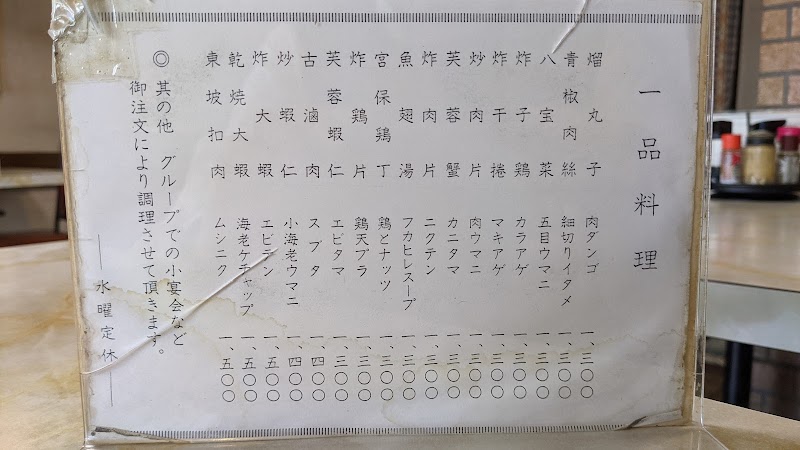 一品料理
熘丸子 肉ダンゴ 一、三〇〇
青椒肉絲 細切りイタメ 一、三〇〇
八宝菜 五目ウマニ 一、三〇〇
炸子鶏 カラアゲ 一、三〇〇
炸干捲 マキアゲ 一、三〇〇
炒肉片 肉ウマニ 一、三〇〇
芙蓉蟹 カニタマ 一、三〇〇
炸肉片 ニクテン 一、三〇〇
魚翅湯 フカヒレスープ 一、三〇〇
宮保鶏丁 鶏とナッツ 一、三〇〇
炸鶏片 鶏天プラ 一、三〇〇
芙蓉蝦仁 エビタマ 一、三〇〇
古滷肉 スブタ 一、四〇〇
炒蝦仁 小海老ウマニ 一、四〇〇
炸大蝦 エビテン 一、五〇〇
乾焼大蝦 海老ケチャップ 一、五〇〇
東坡扣肉 ムシニク 一、五〇〇
◎ 其の他 グループでの小宴会など
御注文により調理させて頂きます。
――水曜定休――